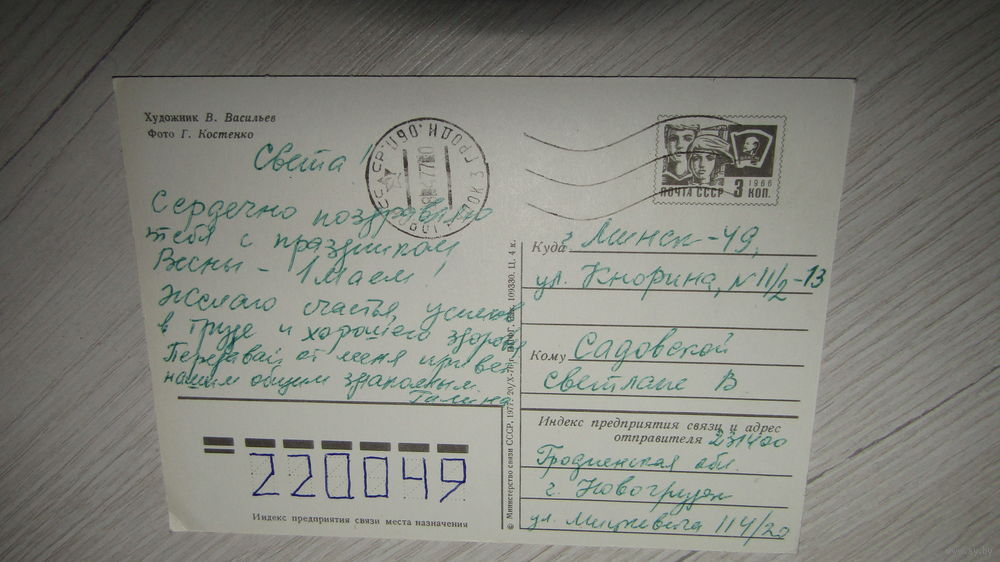 Художник В. Васильев
Фото Г. Костенко
Света!
Сердечно поздравляю
тебя с праздником
Весны - 1 Маем!
Желаю счастья, успехов
в труде и хорошего здоровья
Передавай от меня привет
нашим общим знакомым.
Галина
220049
Индекс предприятия связи места назначения
© Министерство связи СССР, 1977. 20/X-76 г. 109330. Ц. 4 к.
ПОЧТА СССР 3 КОП.
1966
Куда г. Минск-49,
ул. Кнорина, N 11/2-13
Кому Садовской
Светлане В
Индекс предприятия связи и адрес
отправителя 231400
Гродненская обл.
г. Новогрудок
ул. Мицкевича 114/20
www.ay.by